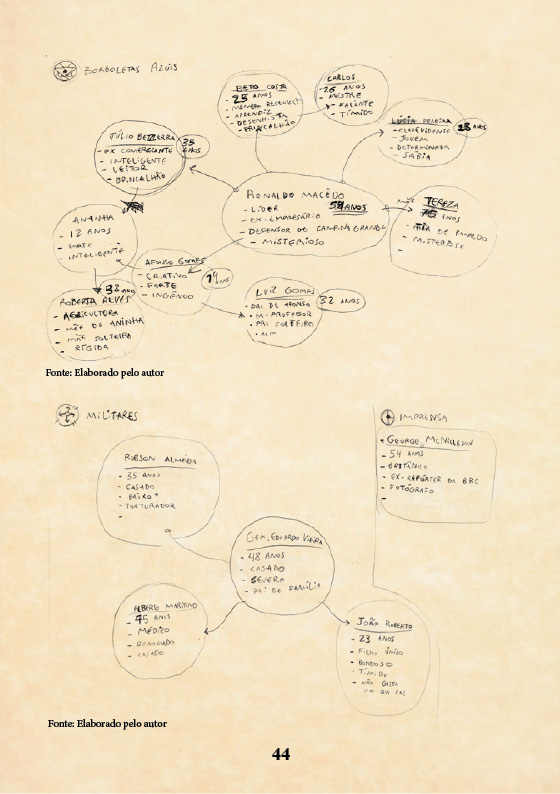 BORBOLETAS AZUIS
BETO COSTA
- 25 ANOS
- APRENDIZ
- DESENHISTA
- BRINCALHÃO
CARLOS
- 26 ANOS
- MESTRE
- FALANTE
- TÍMIDO
LUCIA PEREIRA
- CLARIVIDENTE
- JOVEM
- DETERMINADA
- SÁBIA
JÚLIO BEZERRA
35 ANOS
- EX COMERCIANTE
- INTELIGENTE
- LEITOR
- BRINCALHÃO
RONALDO MACÊDO
- LÍDER
ANOS
- EX-EMPRESÁRIO
- DEFENSOR DE CAMPINA GRANDE
- MISTERIOSO
MÃE
TEREZA
ANOS
- MÃE DE RONALDO
- MISTERIOSA
-
ANINHA
- 12 ANOS
- FORTE
INTELIGENTE
AFONSO GOMES
- CRIATIVO
- FORTE
- INGÊNUO
LUIZ GOMES
32 ANOS
- PAI DE AFONSO
- EX. PROFESSOR
- PAI SOLTEIRO
ROBERTA ALVES
- AGRICULTURA
- MÃE DE ANINHA
- MÃE SOLTEIRA
- RÍGIDA
Fonte: Elaborado pelo autor
MILITARES
ROBSON ALMEIDA
- 35 ANOS
- CASADO
- BAIXO
- TORTURADOR
-
GEN. EDUARDO VIEIRA
- 48 ANOS
- CASADO
- SEVERO
- PAI DE FAMÍLIA
ALBERTO MARIANO
- 45 ANOS
- MÉDICO
- RENOMADO
- CASADO
JOÃO ROBERTO
- 23 ANOS
- FILHO ÚNICO
- BONDOSO
- TÍMIDO
- NÃO GOSTA
DO QUE FAZ
IMPRENSA
GEORGE MCNILLESON
- 54 ANOS
- BRITÂNICO
- EX-REPÓRTER DA BBC
- FOTÓGRAFO
-
Fonte: Elaborado pelo autor
44